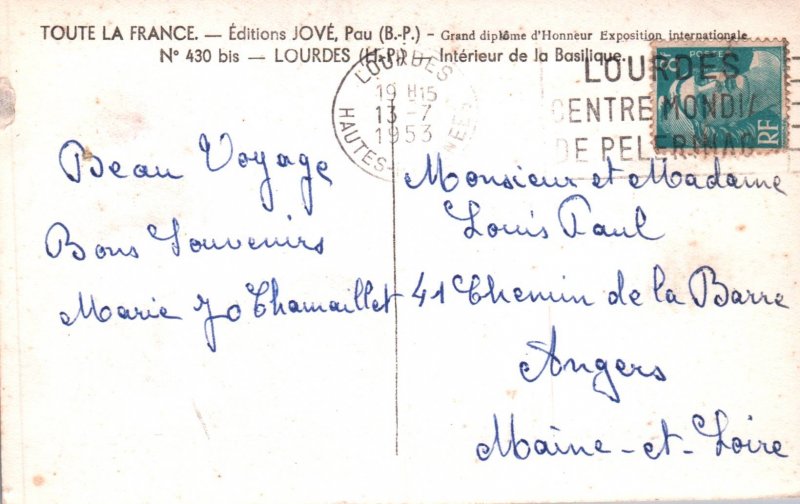 TOUTE LA FRANCE. — Éditions JOVÉ, Pau (B.-P.) — Grand diplôme d'Honneur Exposition internationale
N° 430 bis — LOURDES (H.-P.) — Intérieur de la Basilique.
LOURDES
19 H15
13 -7
1953
HAUTES-
LOURDES
CENTRE MONDIA
DE PELERINAG
POSTES
RF
Beau Voyage
Bons Souvenirs
Marie Jo Thamaillet
Monsieur et Madame
Louis Paul
41 Chemin de la Barre
Angers
Maine-et-Loire